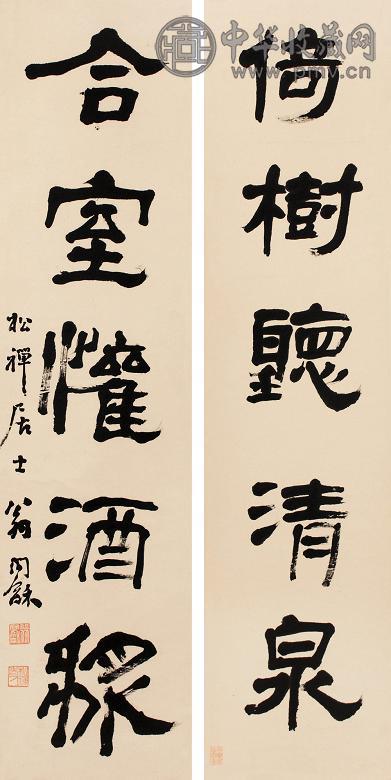 中华收藏网
www.pmv.cn
倚樹聽清泉
合室懽酒
松禪居士翁同龢